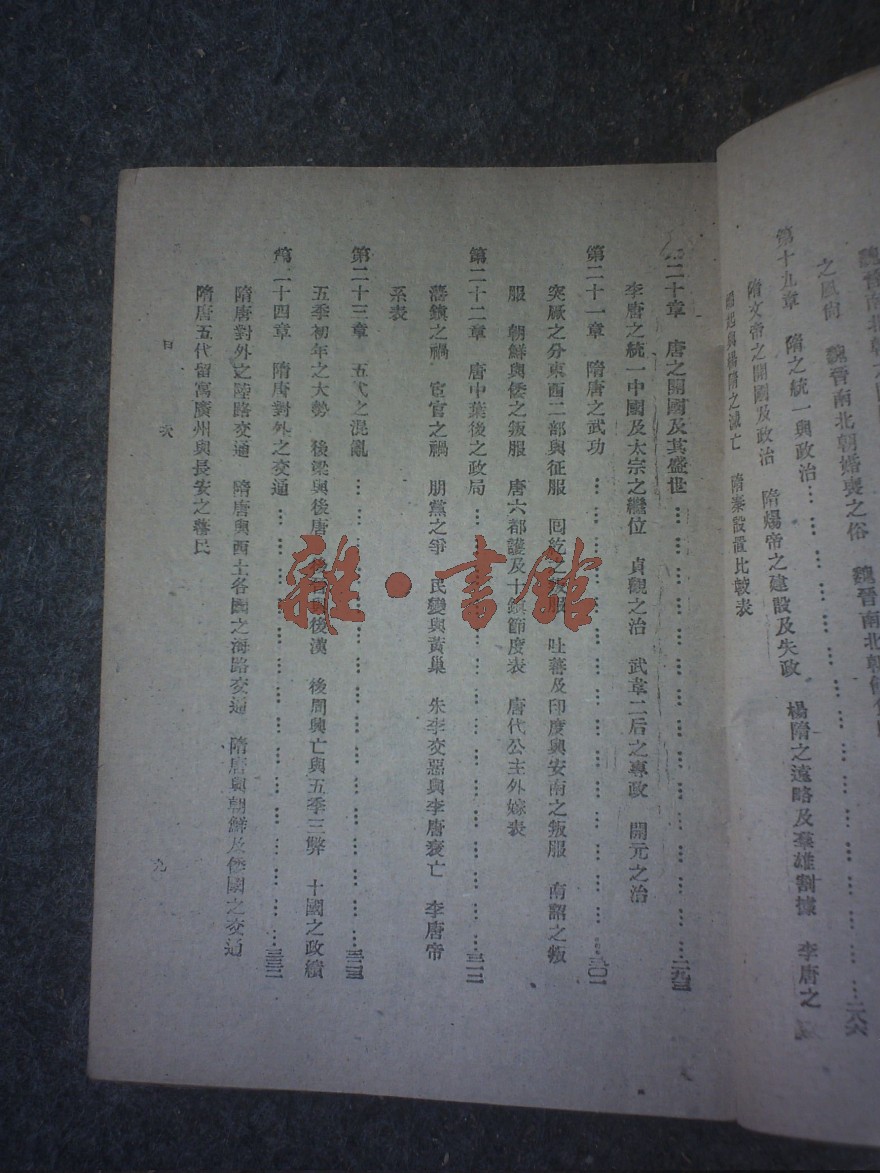 魏晉南北朝
之風尚　魏晉南北朝婚喪之俗　魏晉南北朝
第十九章　隋之統一與政治…………二八六
隋文帝之開國及政治　隋煬帝之建設及失政　楊隋之遠略及羣雄割據　李唐之
起與楊隋之滅亡　隋秦設置比較表
二十章　唐之開國及其盛世…………二九三
李唐之統一中國及太宗之繼位　貞觀之治　武韋二后之專政　開元之治
第二十一章　隋唐之武功…………三〇一
突厥之分東西二部與征服　回紇之叛服　吐蕃及印度與安南之叛服　南詔之叛
服　朝鮮與倭之叛服　唐六都護及十鎮節度表　唐代公主外嫁表
第二十二章　唐中葉後之政局…………三一二
藩鎮之禍　宦官之禍　朋黨之爭　民變與黃巢　朱李交惡與李唐衰亡　李唐帝
系表
第二十三章　五代之混亂…………三二三
五季初年之大勢　後梁與後唐　後晉與後漢　後周興亡與五季三弊　十國之政績
第二十四章　隋唐對外之交通…………三三二
隋唐對外之陸路交通　隋唐與西土各國之海路交通　隋唐與朝鮮及倭國之交通
隋唐五代留寓廣州與長安之蕃民
目　次　九
雜·書館